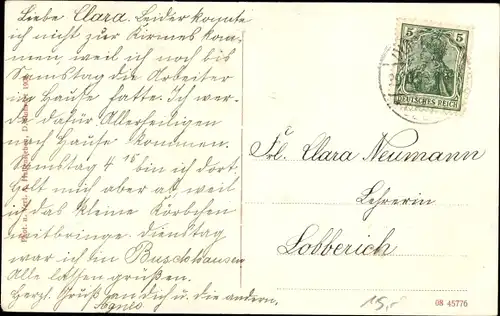 Liebe Clara. Leider konnte
ich nicht zur Kirmes kom-
men, weil ich noch bis
Samstag die Arbeiter
im Hause hatte. Ich wer-
de dafür Allerheiligen
nach Hause kommen.
Samstag 4 15 bin ich dort.
Holt mich aber ab weil
ich das kleine Körbchen
mitbringe. Dienstag
war ich in Buschhausen
Alle lassen grüßen.
Herzl. Gruß an dich u. die andern,
Agnes
5 5
DEUTSCHES REICH
Frl. Clara Neumann
Lehrerin
Lobberich
15,-
08 45776